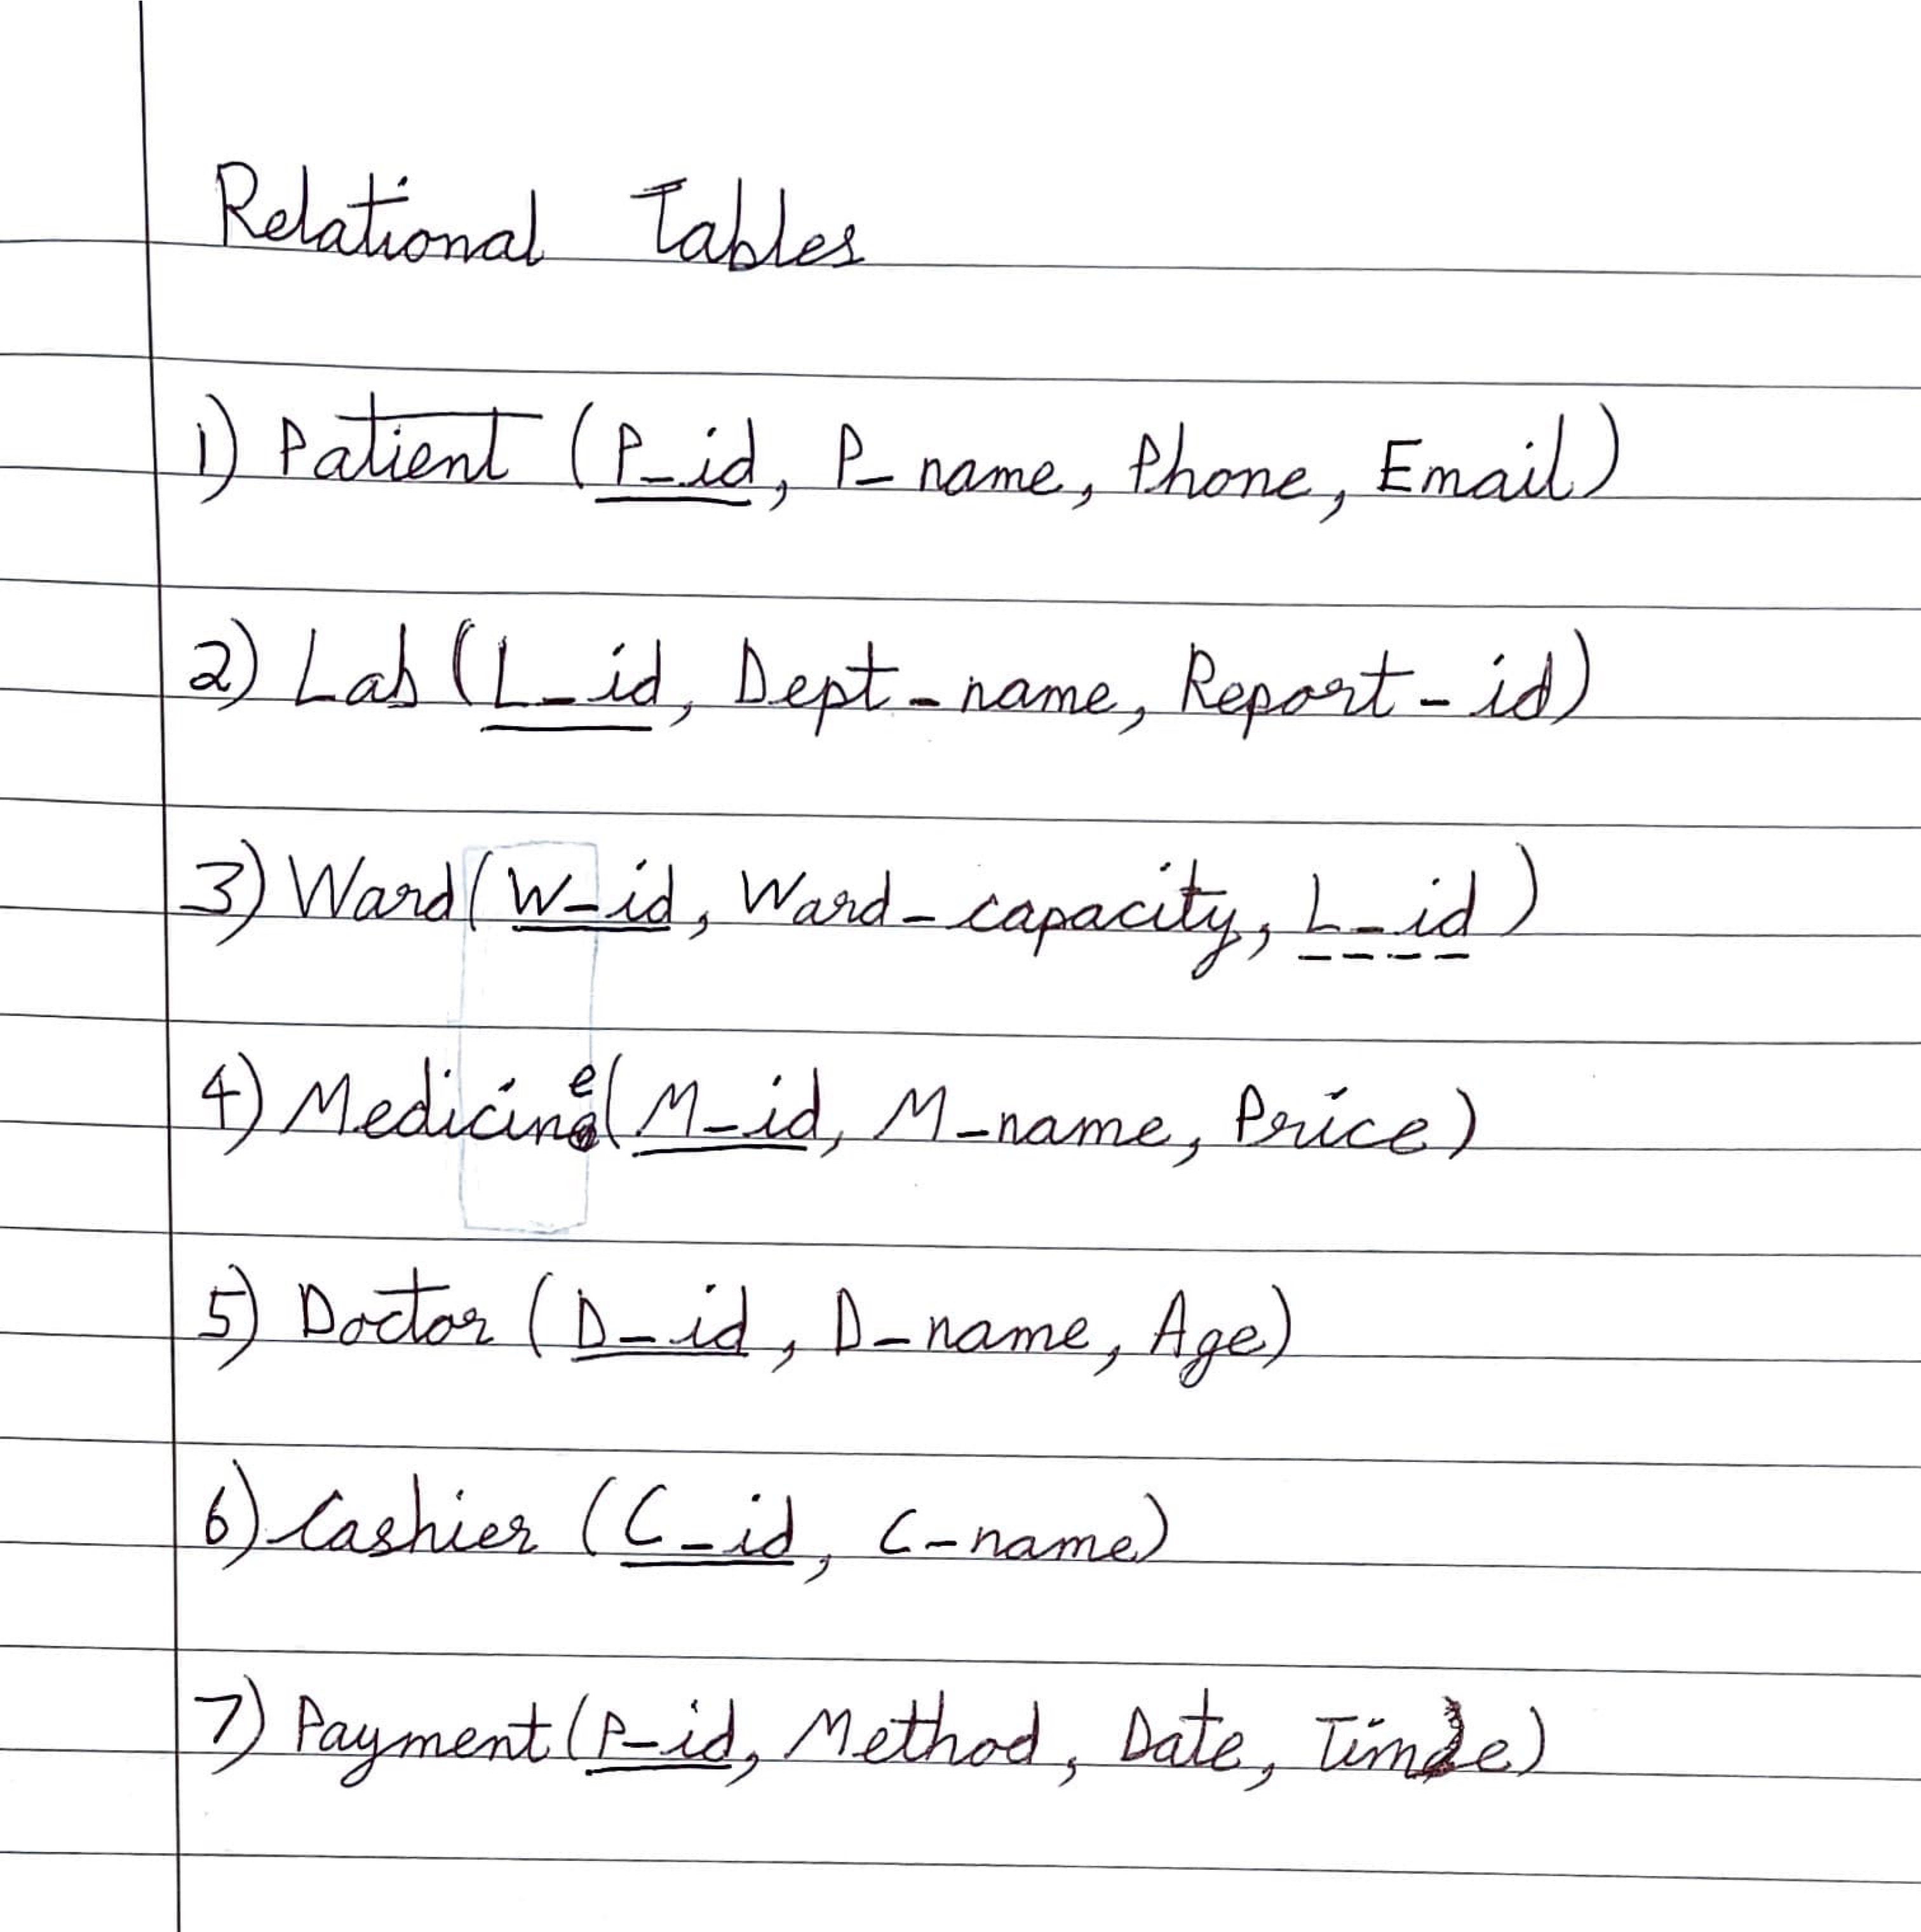 Relational Tables
1) Patient (P_id, P_name, Phone, Email)
2) Lab (L_id, Dept_name, Report_id)
3) Ward (W_id, Ward_capacity, L_id)
4) Medicine (M_id, M_name, Price)
5) Doctor (D_id, D_name, Age)
6) Cashier (C_id, C_name)
7) Payment (P_id, Method, Date, Time)